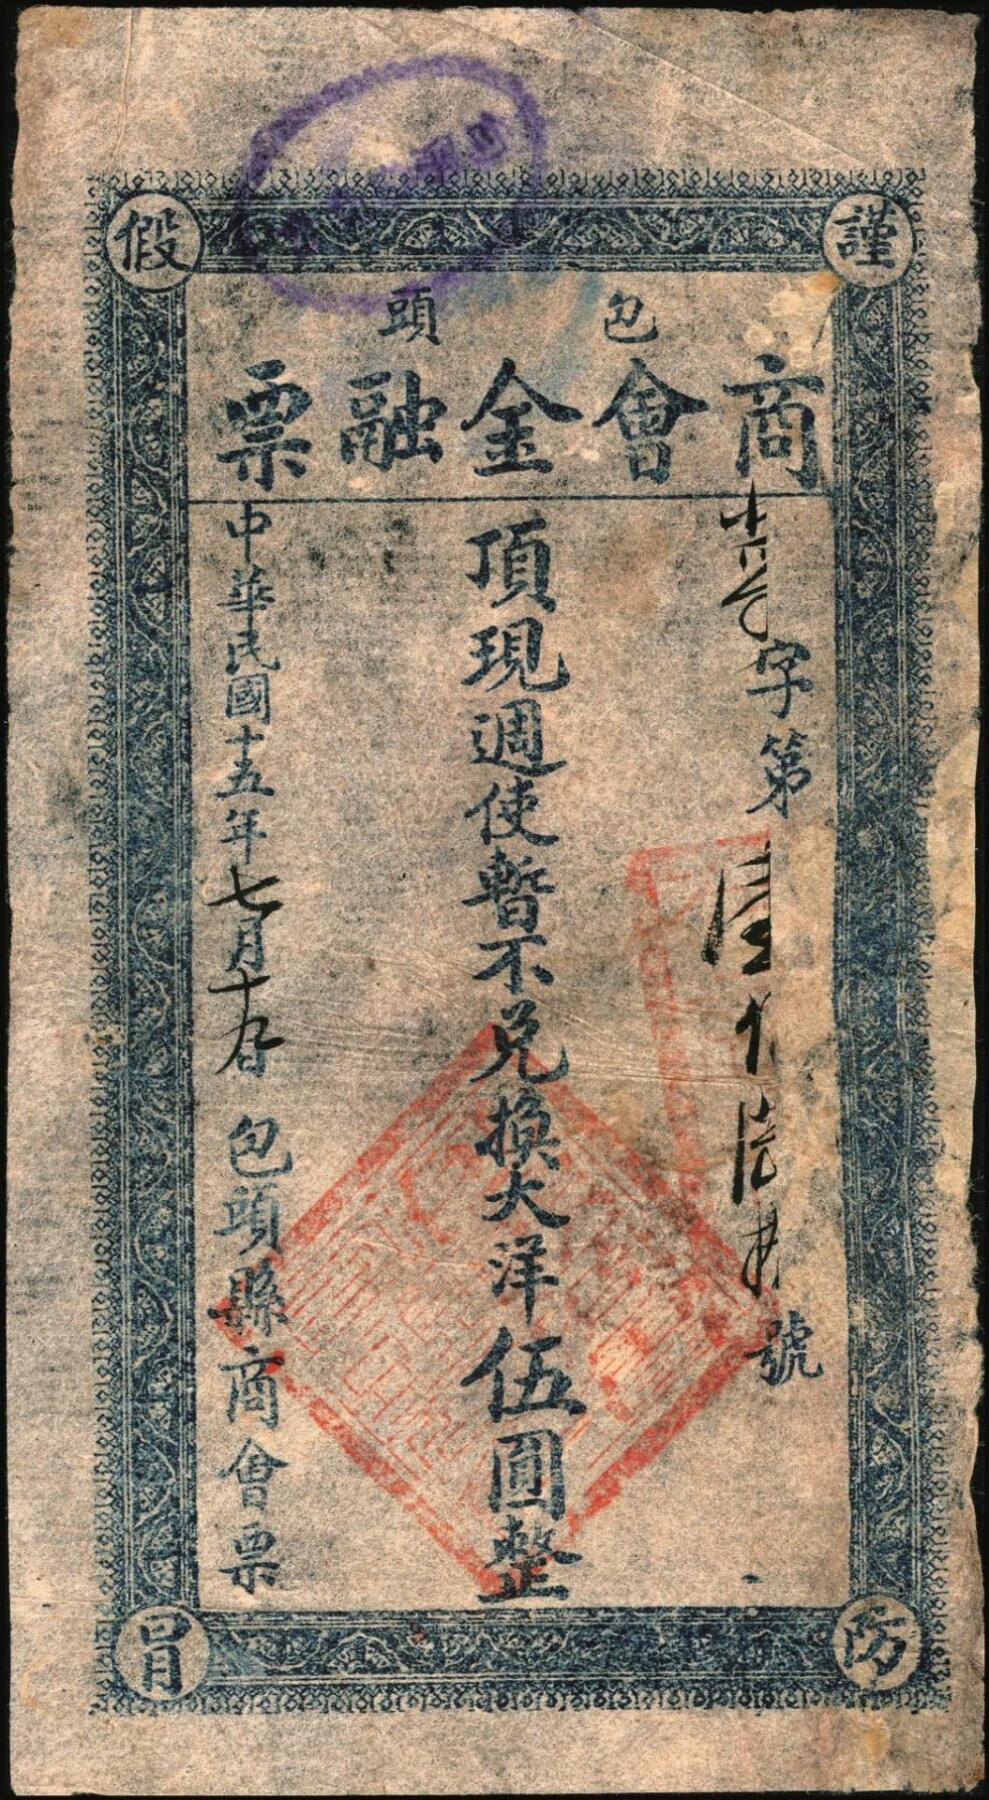 謹防假冒
包頭
商會金融票
字第 號
頂現週使暫不兌換大洋伍圓整
中華民國十五年七月十九日 包頭縣商會票